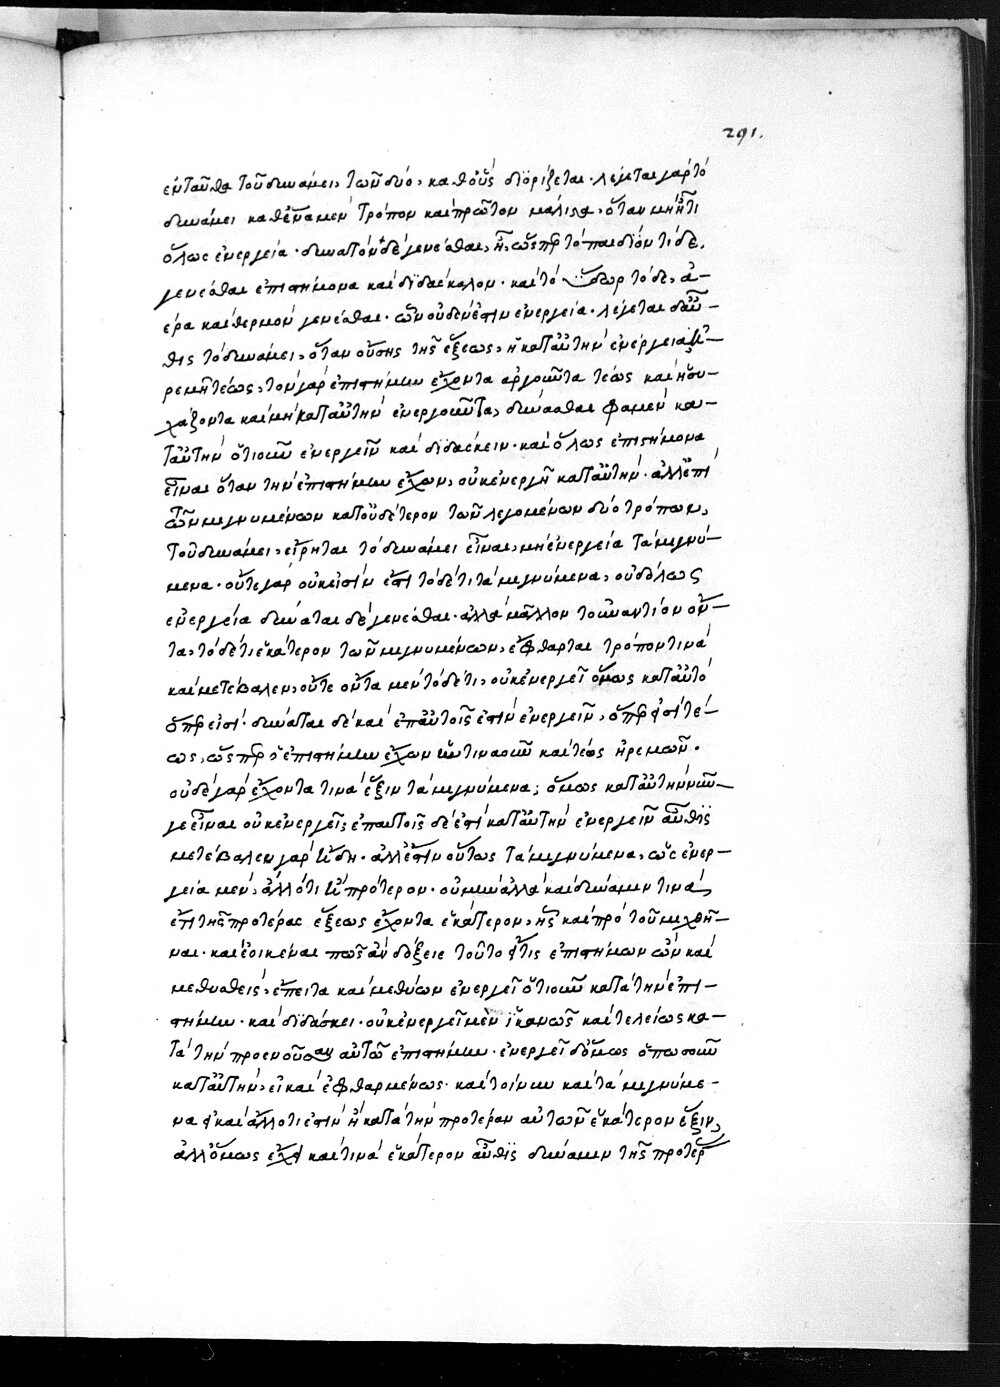 291.
ἐνταῦθα τοῦ δυνάμει, τῶν δύο, καθ' οὓς διορίζεται. λέγεται γὰρ τὸ
δυνάμει καθ' ἕνα μὲν τρόπον καὶ πρῶτον μάλιστα, ὅταν μὴ ᾖ τι
ὅλως ἐνεργεία. δυνατὸν δὲ γενέσθαι, ἢ, ὥσπερ τὸ παιδίον τόδε,
γενέσθαι ἐπιστήμονα καὶ διδάσκαλον. καὶ τὸ ὕδωρ τόδε, ἀ-
έρα καὶ θερμὸν γενέσθαι. ὧν οὐδέν ἐστιν ἐνεργεία. λέγεται δ' αὖ-
θις τὸ δυνάμει, ὅταν οὔσης τῆς ἕξεως, ἡ κατ' αὐτὴν ἐνέργεια
ρεμῇ τέως, τὸν γὰρ ἐπιστήμην ἔχοντα ἀργοῦντα τέως καὶ ἡσυ-
χάζοντα καὶ μὴ κατ' αὐτὴν ἐνεργοῦντα, δύνασθαι φαμὲν κα-
τ' αὐτὴν ὁτιοῦν ἐνεργεῖν καὶ διδάσκειν. καὶ ὅλως ἐπιστήμονα
εἶναι ὅταν τὴν ἐπιστήμην ἔχων, οὐκ ἐνεργῇ κατ' αὐτήν. ἀλλ' ἐπὶ
τῶν μιγνυμένων κατ' οὐδέτερον τῶν λεγομένων δύο τρόπων,
τοῦ δυνάμει, εἴρηται τὸ δυνάμει εἶναι, μὴ ἐνεργεία τὰ μιγνύ-
μενα. οὔτε γὰρ οὐκ εἰσὶν ἔτι τόδέ τι τὰ μιγνύμενα, οὐδ' ὅλως
ἐνεργεία δύναται δὲ γενέσθαι. ἀλλὰ μᾶλλον τοὐναντίον ὄν-
τα, τόδέ τι ἑκάτερον τῶν μιγνυμένων, ἔφθαρται τρόπον τινὰ
καὶ μετέβαλεν, οὔτε ὄντα μὲν τόδέ τι, οὐκ ἐνεργεῖ ὅμως κατ' αὐτὸ
ὅπερ εἰσί. δύναται δὲ καὶ ἐπ' αὐτοῖς ἐστὶν ἐνεργεῖν, ὅπερ ἐστὶ τέ-
ως, ὥσπερ ὁ ἐπιστήμην ἔχων ἥντιναοῦν καὶ τέως ἠρεμῶν.
οὐδὲ γὰρ ἔχοντα τινὰ ἕξιν τὰ μιγνύμενα, ὅμως κατ' αὐτὴν νῦν
γε εἶναι οὐκ ἐνεργεῖ, ἐπ' αυτοῖς δέ ἐστι κατ' αὐτὴν ἐνεργεῖν αὖθις
μετέβαλεν γὰρ ἤδη. ἀλλ' ἔστιν οὕτως τὰ μιγνύμενα, ὡς ἐνερ-
γεία μὲν, ἄλλό τι ἢ πρότερον. οὐ μὴν ἀλλὰ καὶ δύναμιν τινὰ
ἔτι τῆς προτέρας ἕξεως ἔχοντα ἑκάτερον, ἧς καὶ πρὸ τοῦ μιχθῆ-
ναι. καὶ ἐοικέναι πως ἂν δόξειε τοῦτο ᾧ τις ἐπιστήμων ὢν καὶ
μεθυσθείς, ἔπειτα καὶ μεθύων ἐνεργεῖ ὁτιοῦν κατὰ τὴν ἐπι-
στήμην. καὶ διδάσκει. οὐκ ἐνεργεῖ μὲν ἱκανῶς καὶ τελείως κα-
τὰ τὴν προενοῦσαν αὐτῷ ἐπιστήμην. ἐνεργεῖ δ' ὅμως ὁπωσοῦν
κατ' αὐτὴν, εἰ καὶ ἐφθαρμένως. καὶ τοίνυν καὶ τὰ μιγνύμε-
να εἰ καὶ ἄλλο τι ἐστὶν ἢ κατὰ τὴν προτέραν αὐτῶν ἑκάτερον ἕξιν,
ἀλλ' ὅμως ἔχει καὶ τινὰ ἑκάτερον αὖθις δύναμιν τῆς προτέρ